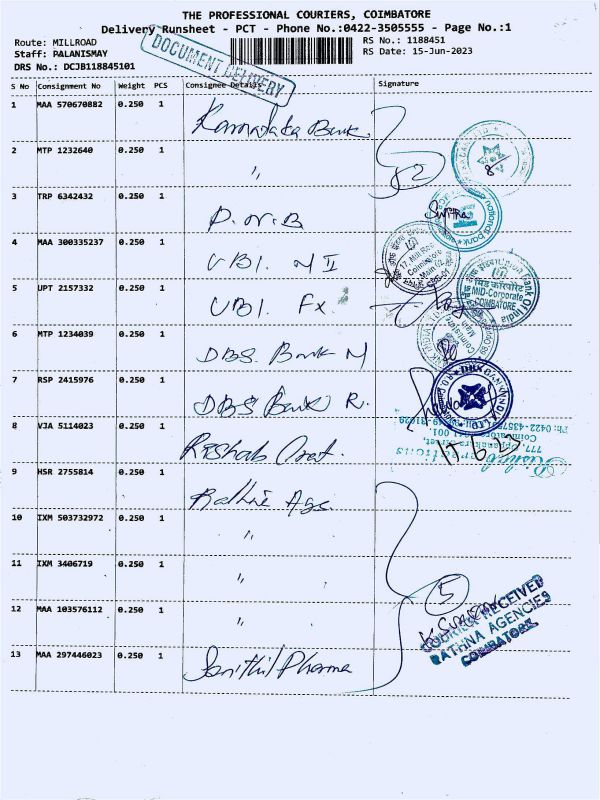 THE PROFESSIONAL COURIERS, COIMBATORE
Delivery Runsheet - PCT - Phone No.:0422-3505555 - Page No.:1
Route: MILLROAD
Staff: PALANISMAY
DRS No.: DCJB118845101
RS No.: 1188451
RS Date: 15-Jun-2023
DOCUMENT DELIVERY
S No Consignment No Weight PCS Consignee Details Signature
1 MAA 570670882 0.250 1 Karnataka Bank
2 MTP 1232640 0.250 1 "
3 TRP 6342432 0.250 1 P.N.B
4 MAA 300335237 0.250 1 UBI. M II
5 UPT 2157332 0.250 1 UBI. Fx.
6 MTP 1234039 0.250 1 DBS Bank M
7 RSP 2415976 0.250 1 DBS Bank R.
8 VJA 5114023 0.250 1 Rishab
9 HSR 2755814 0.250 1 Rathne Ags.
10 IXM 503732972 0.250 1 "
11 IXM 3406719 0.250 1 "
12 MAA 103576112 0.250 1 "
13 MAA 297446023 0.250 1 Pharma
national bank
Union Bank Of India
MID-Corporate
COIMBATORE
5
RECEIVED
RATHNA AGENCIES
COIMBATORE